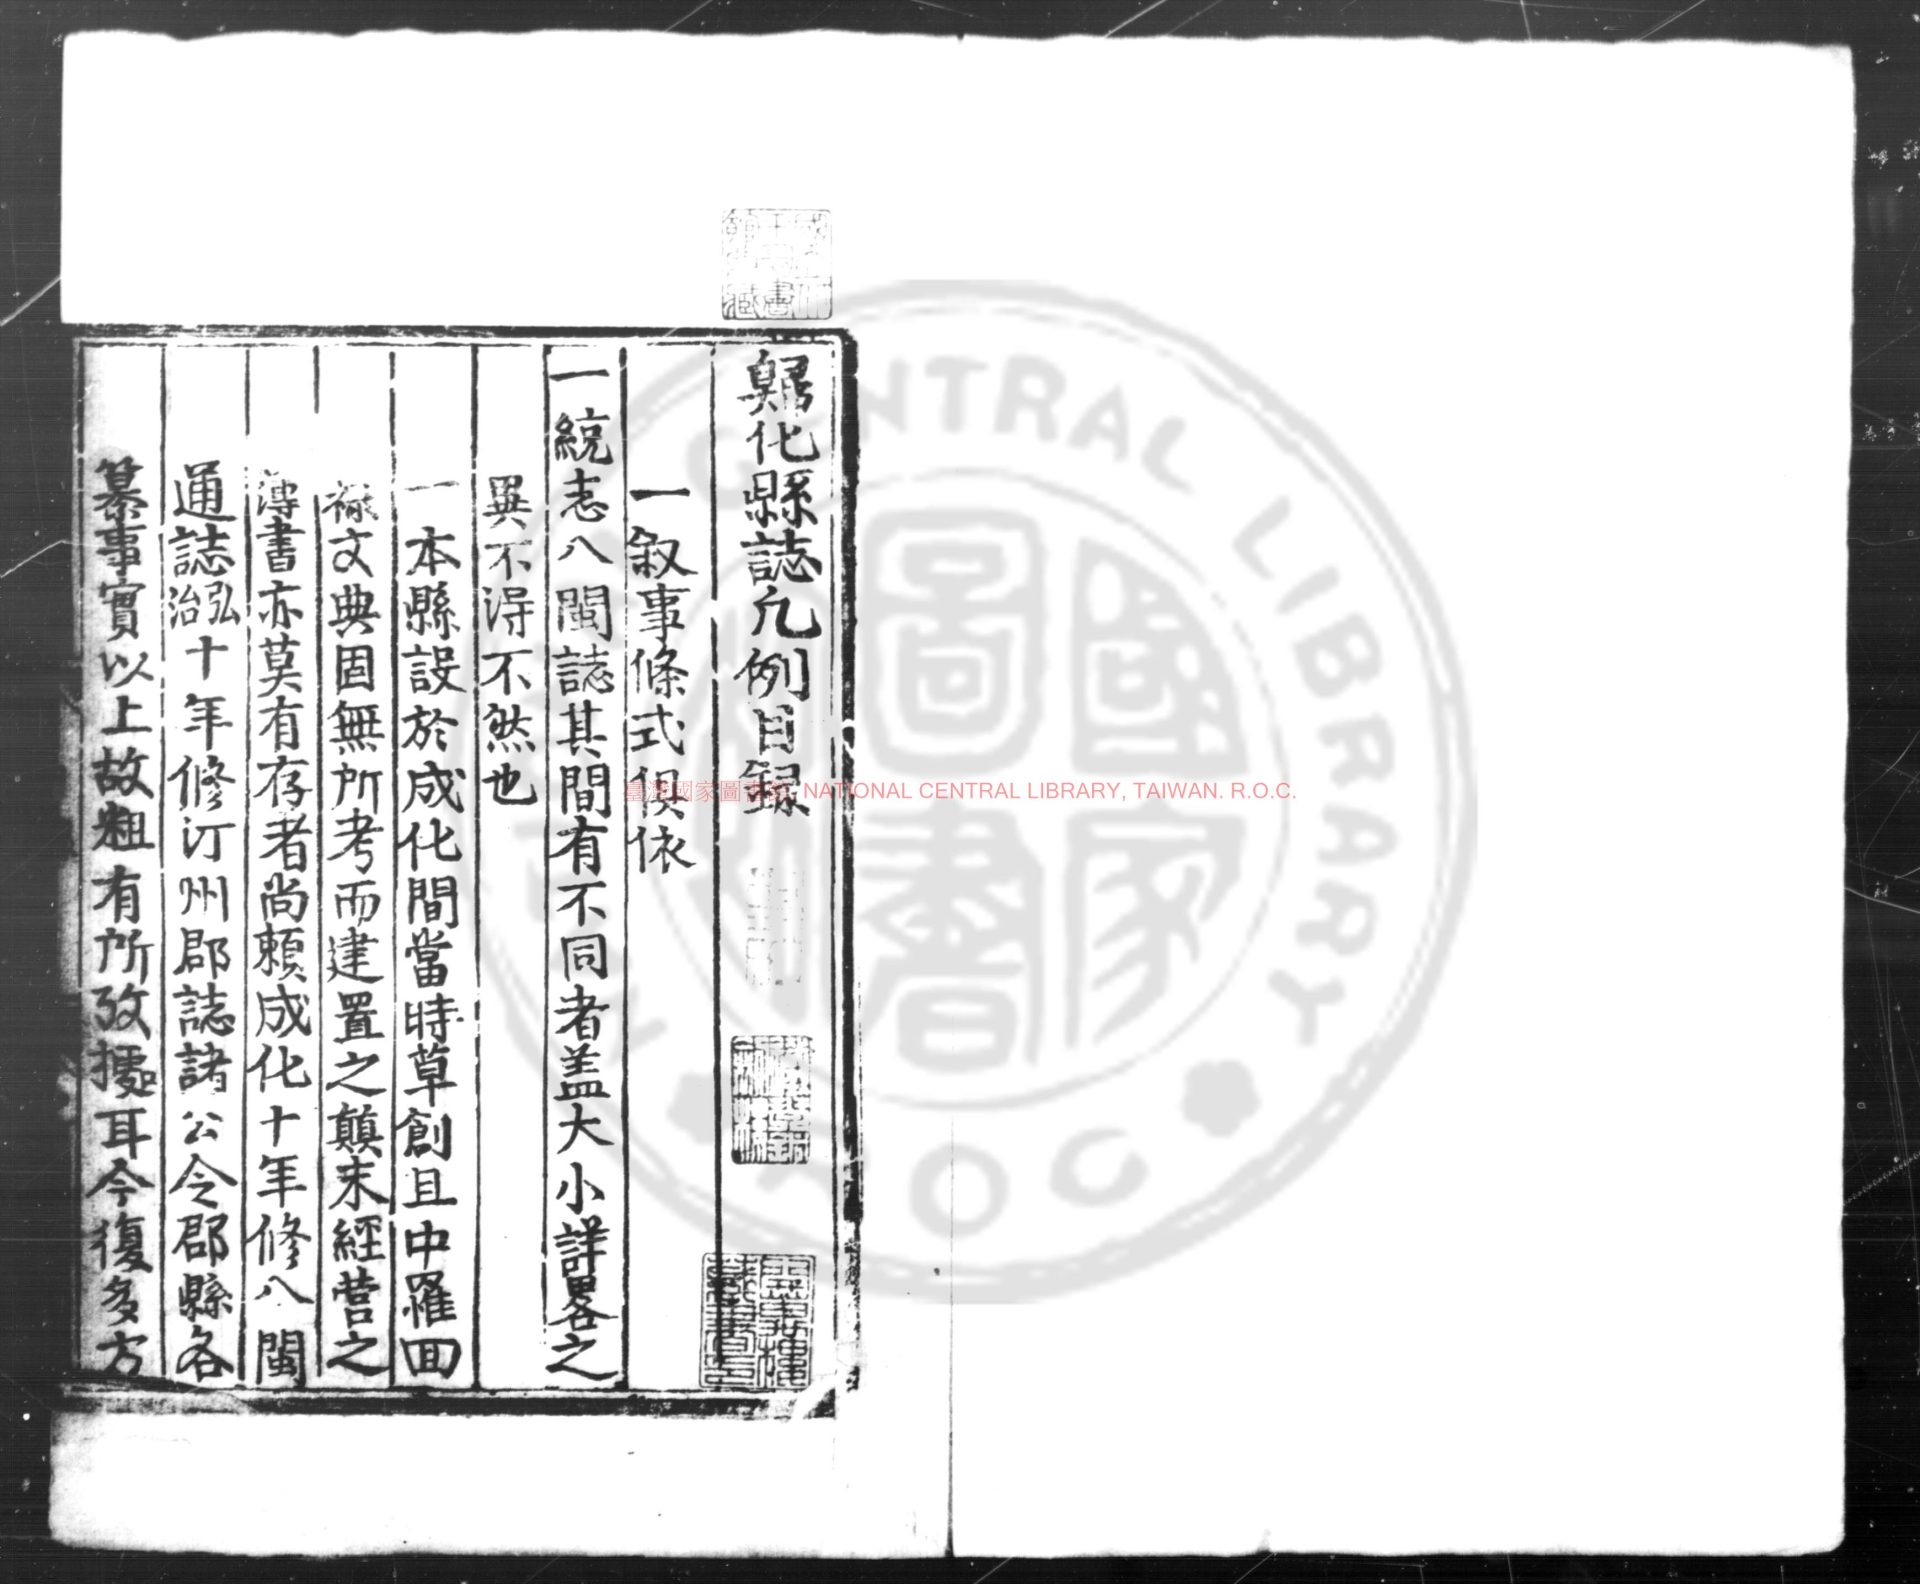 歸化縣誌凡例目録
一叙事條式俱依
一統志八閩誌其間有不同者盖大小詳畧之
異不得不然也
一本縣設於成化間當時草創且中罹回
禄文典固無所考而建置之顛末經营之
傳書亦莫有存者尚賴成化十年修八閩
通誌弘治十年修汀州郡誌諸公令郡縣各
纂事實以上故粗有所攷據耳今復多方
臺灣國家圖書館, NATIONAL CENTRAL LIBRARY, TAIWAN. R.O.C.
CENTRAL LIBRARY
國家圖書